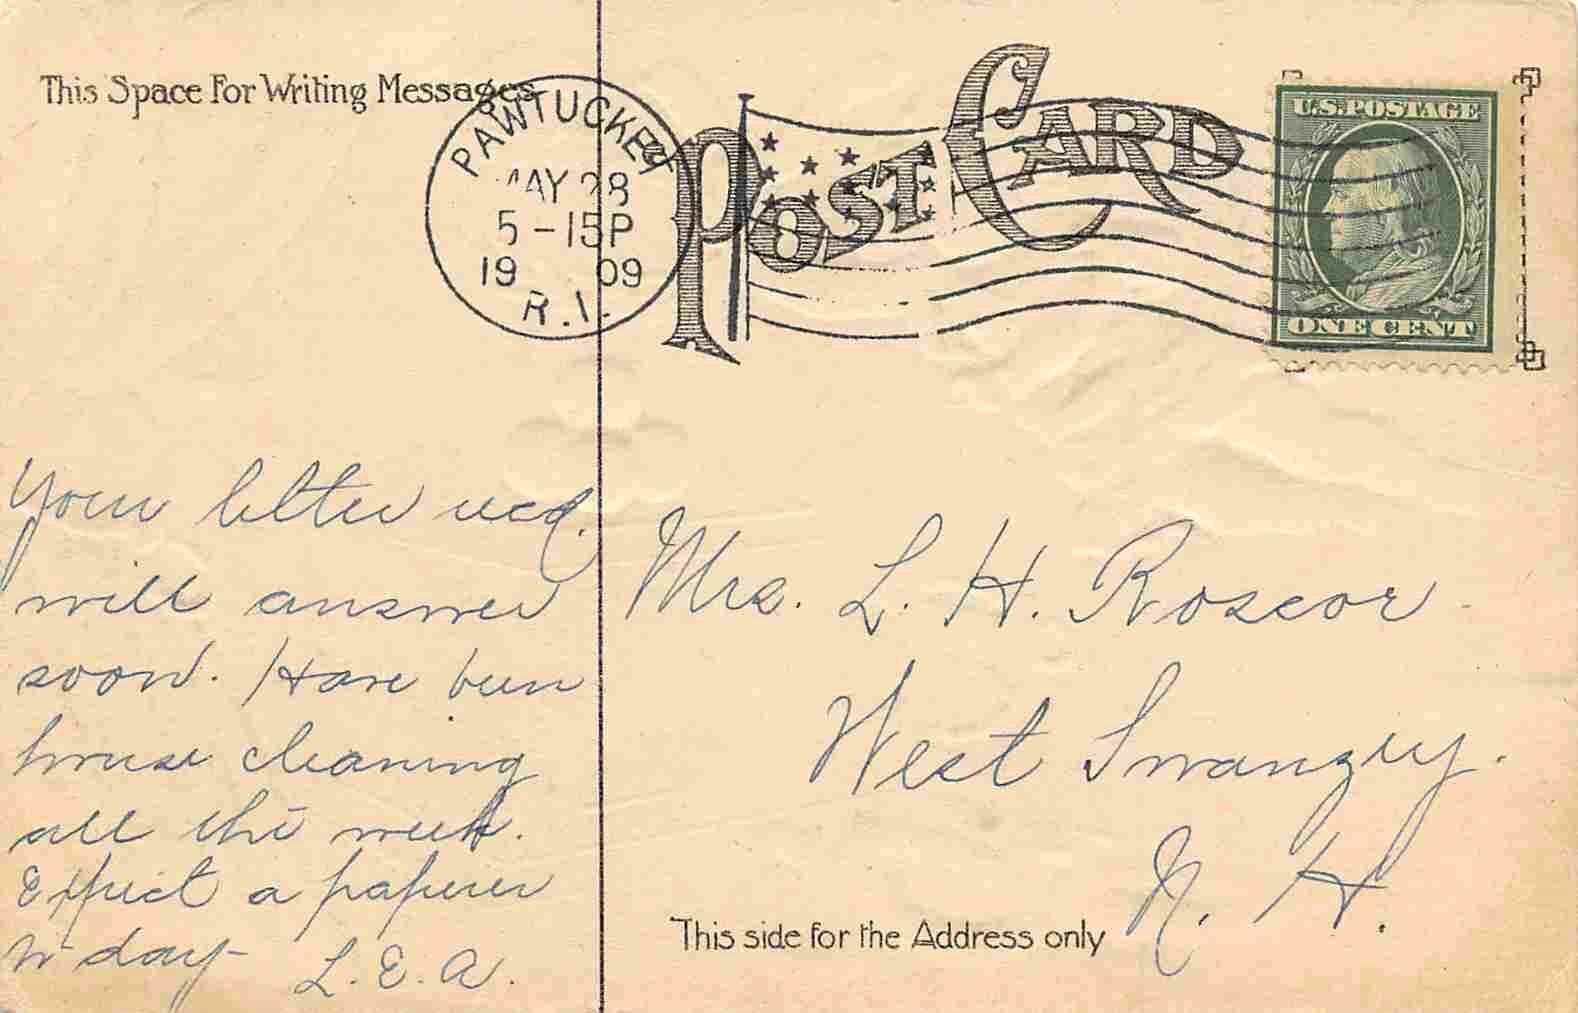 This Space For Writing Messages
POST CARD
PAWTUCKET
MAY 28
5-15P
1909
R.I.
U.S. POSTAGE
ONE CENT
Your letter recd.
will answer
soon. Have been
house cleaning
all the week.
Expect a paperer
to day-
L.E.A.
Mrs. L. H. Roscoe
West Swanzey.
N. H.
This side for the Address only